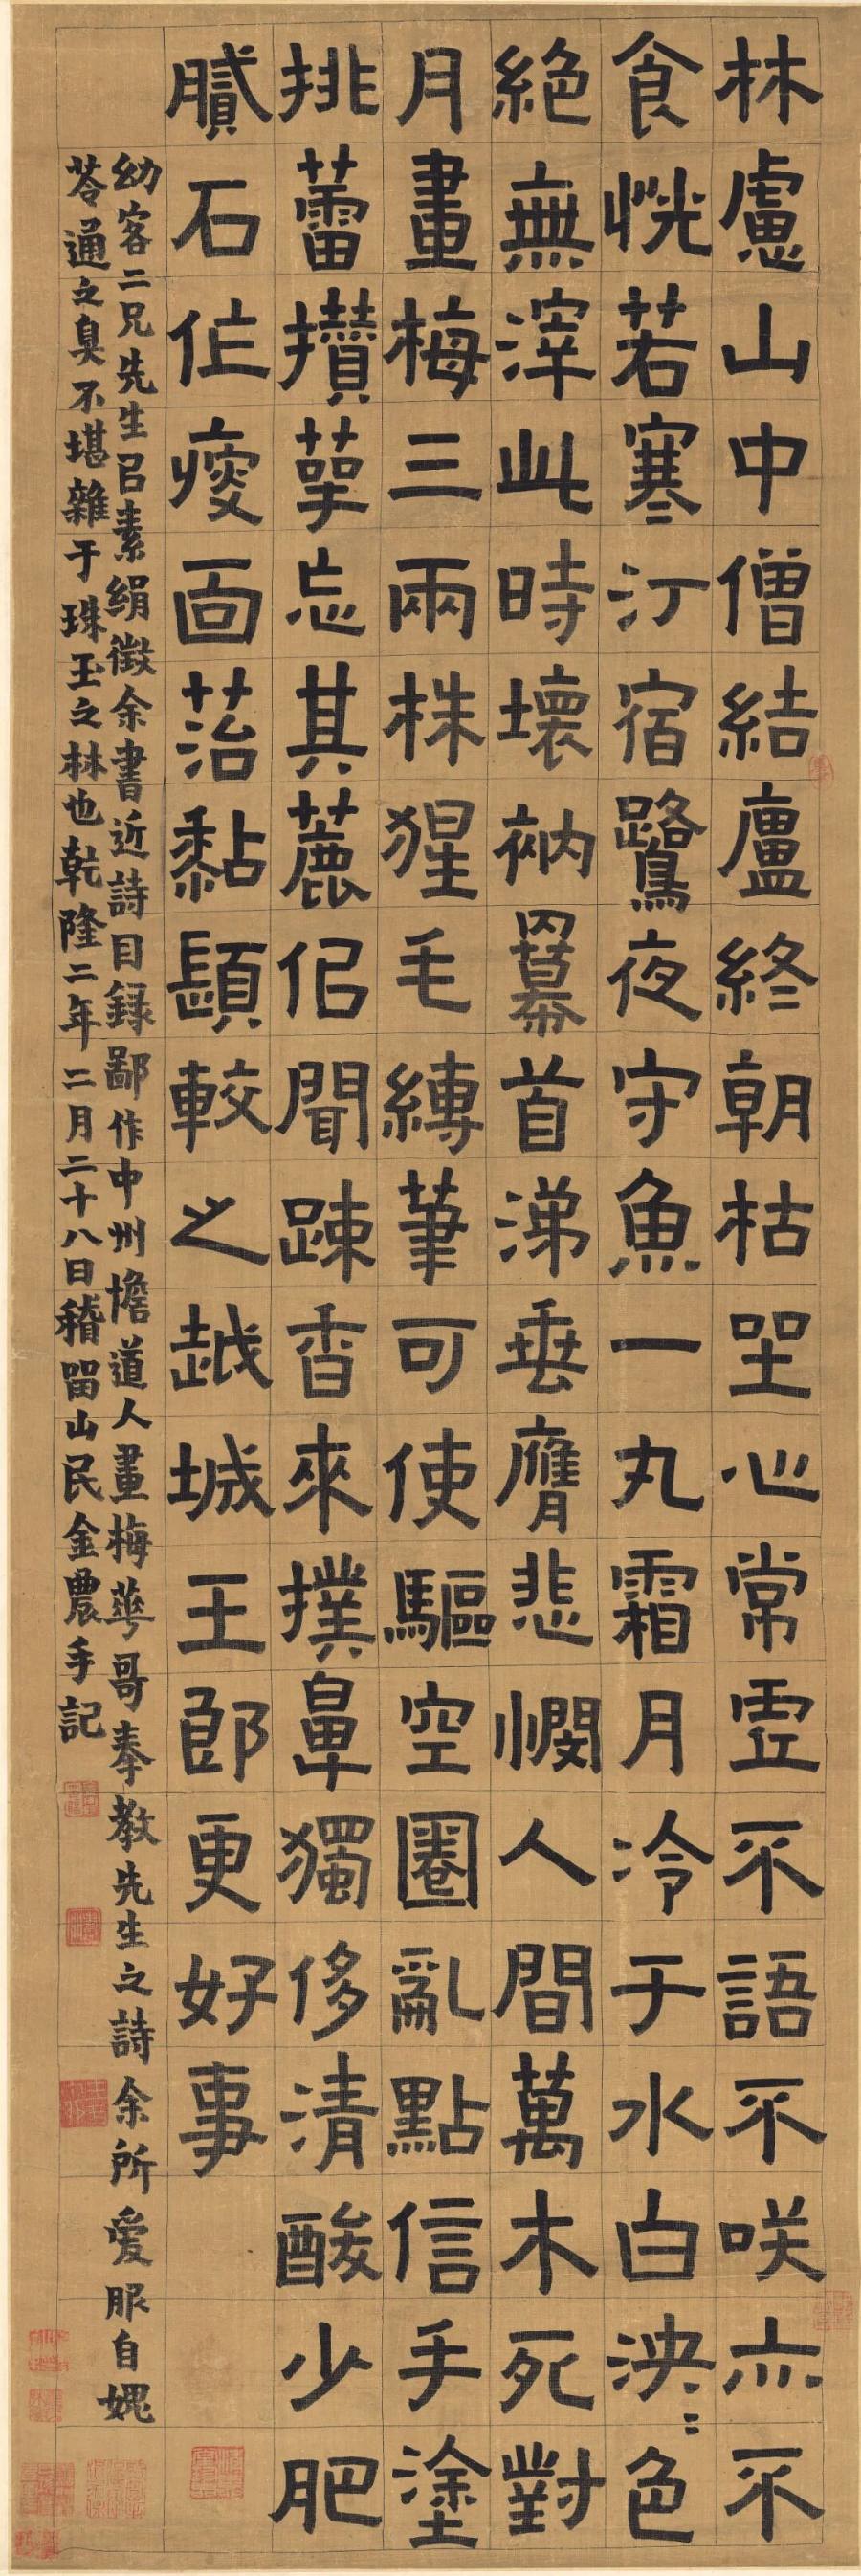 林慮山中僧結廬終朝枯坐心常虛不語不咲亦不
食恍若寒汀宿鷺夜守魚一丸霜月冷于水白泱〻色
絕無滓此時壞衲羃首涕垂膺悲憫人間萬木死對
月畫梅三兩株猩毛縛筆可使驅空圈亂點信手塗
挑蕾攢萼忘其麤但聞疎香來撲鼻獨侈清酸少肥
膩石作瘦面苔黏顋較之越城王郎更好事
幼客二兄先生㠯素絹徵余書近詩目録鄙作中州憺道人畫梅華哥奉教先生之詩余所愛服自媿
苓通之臭不堪雜于珠玉之林也乾隆二年二月二十八日稽留山民金農手記